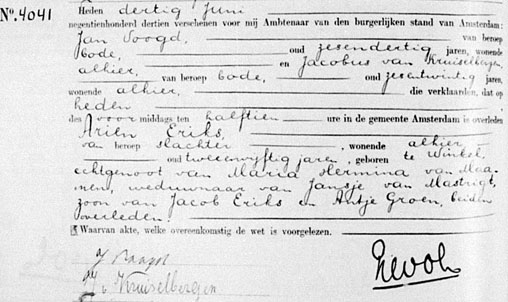 Nº. 4041
Heden dertig Juni
negentienhonderd dertien verschenen voor mij Ambtenaar van den burgerlijken stand van Amsterdam:
Jan Voogd, van beroep
bode, oud zesendertig jaren, wonende
alhier, en Jacobus van Kruiselbergen,
van beroep bode, oud zesentwintig jaren,
wonende alhier, die verklaarden, dat op
heden
des voormiddags ten halftien ure in de gemeente Amsterdam is overleden
Arien Eriks,
van beroep slachter, wonende alhier,
oud tweeenvyftig jaren, geboren te Winkel,
echtgenoot van Maria Hermina van Maa-
nen, weduwnaar van Jansje van Mastrigt,
zoon van Jacob Eriks en Antje Groen, beiden
overleden.
Waarvan akte, welke overeenkomstig de wet is voorgelezen.
J Voogd
J v Kruiselbergen